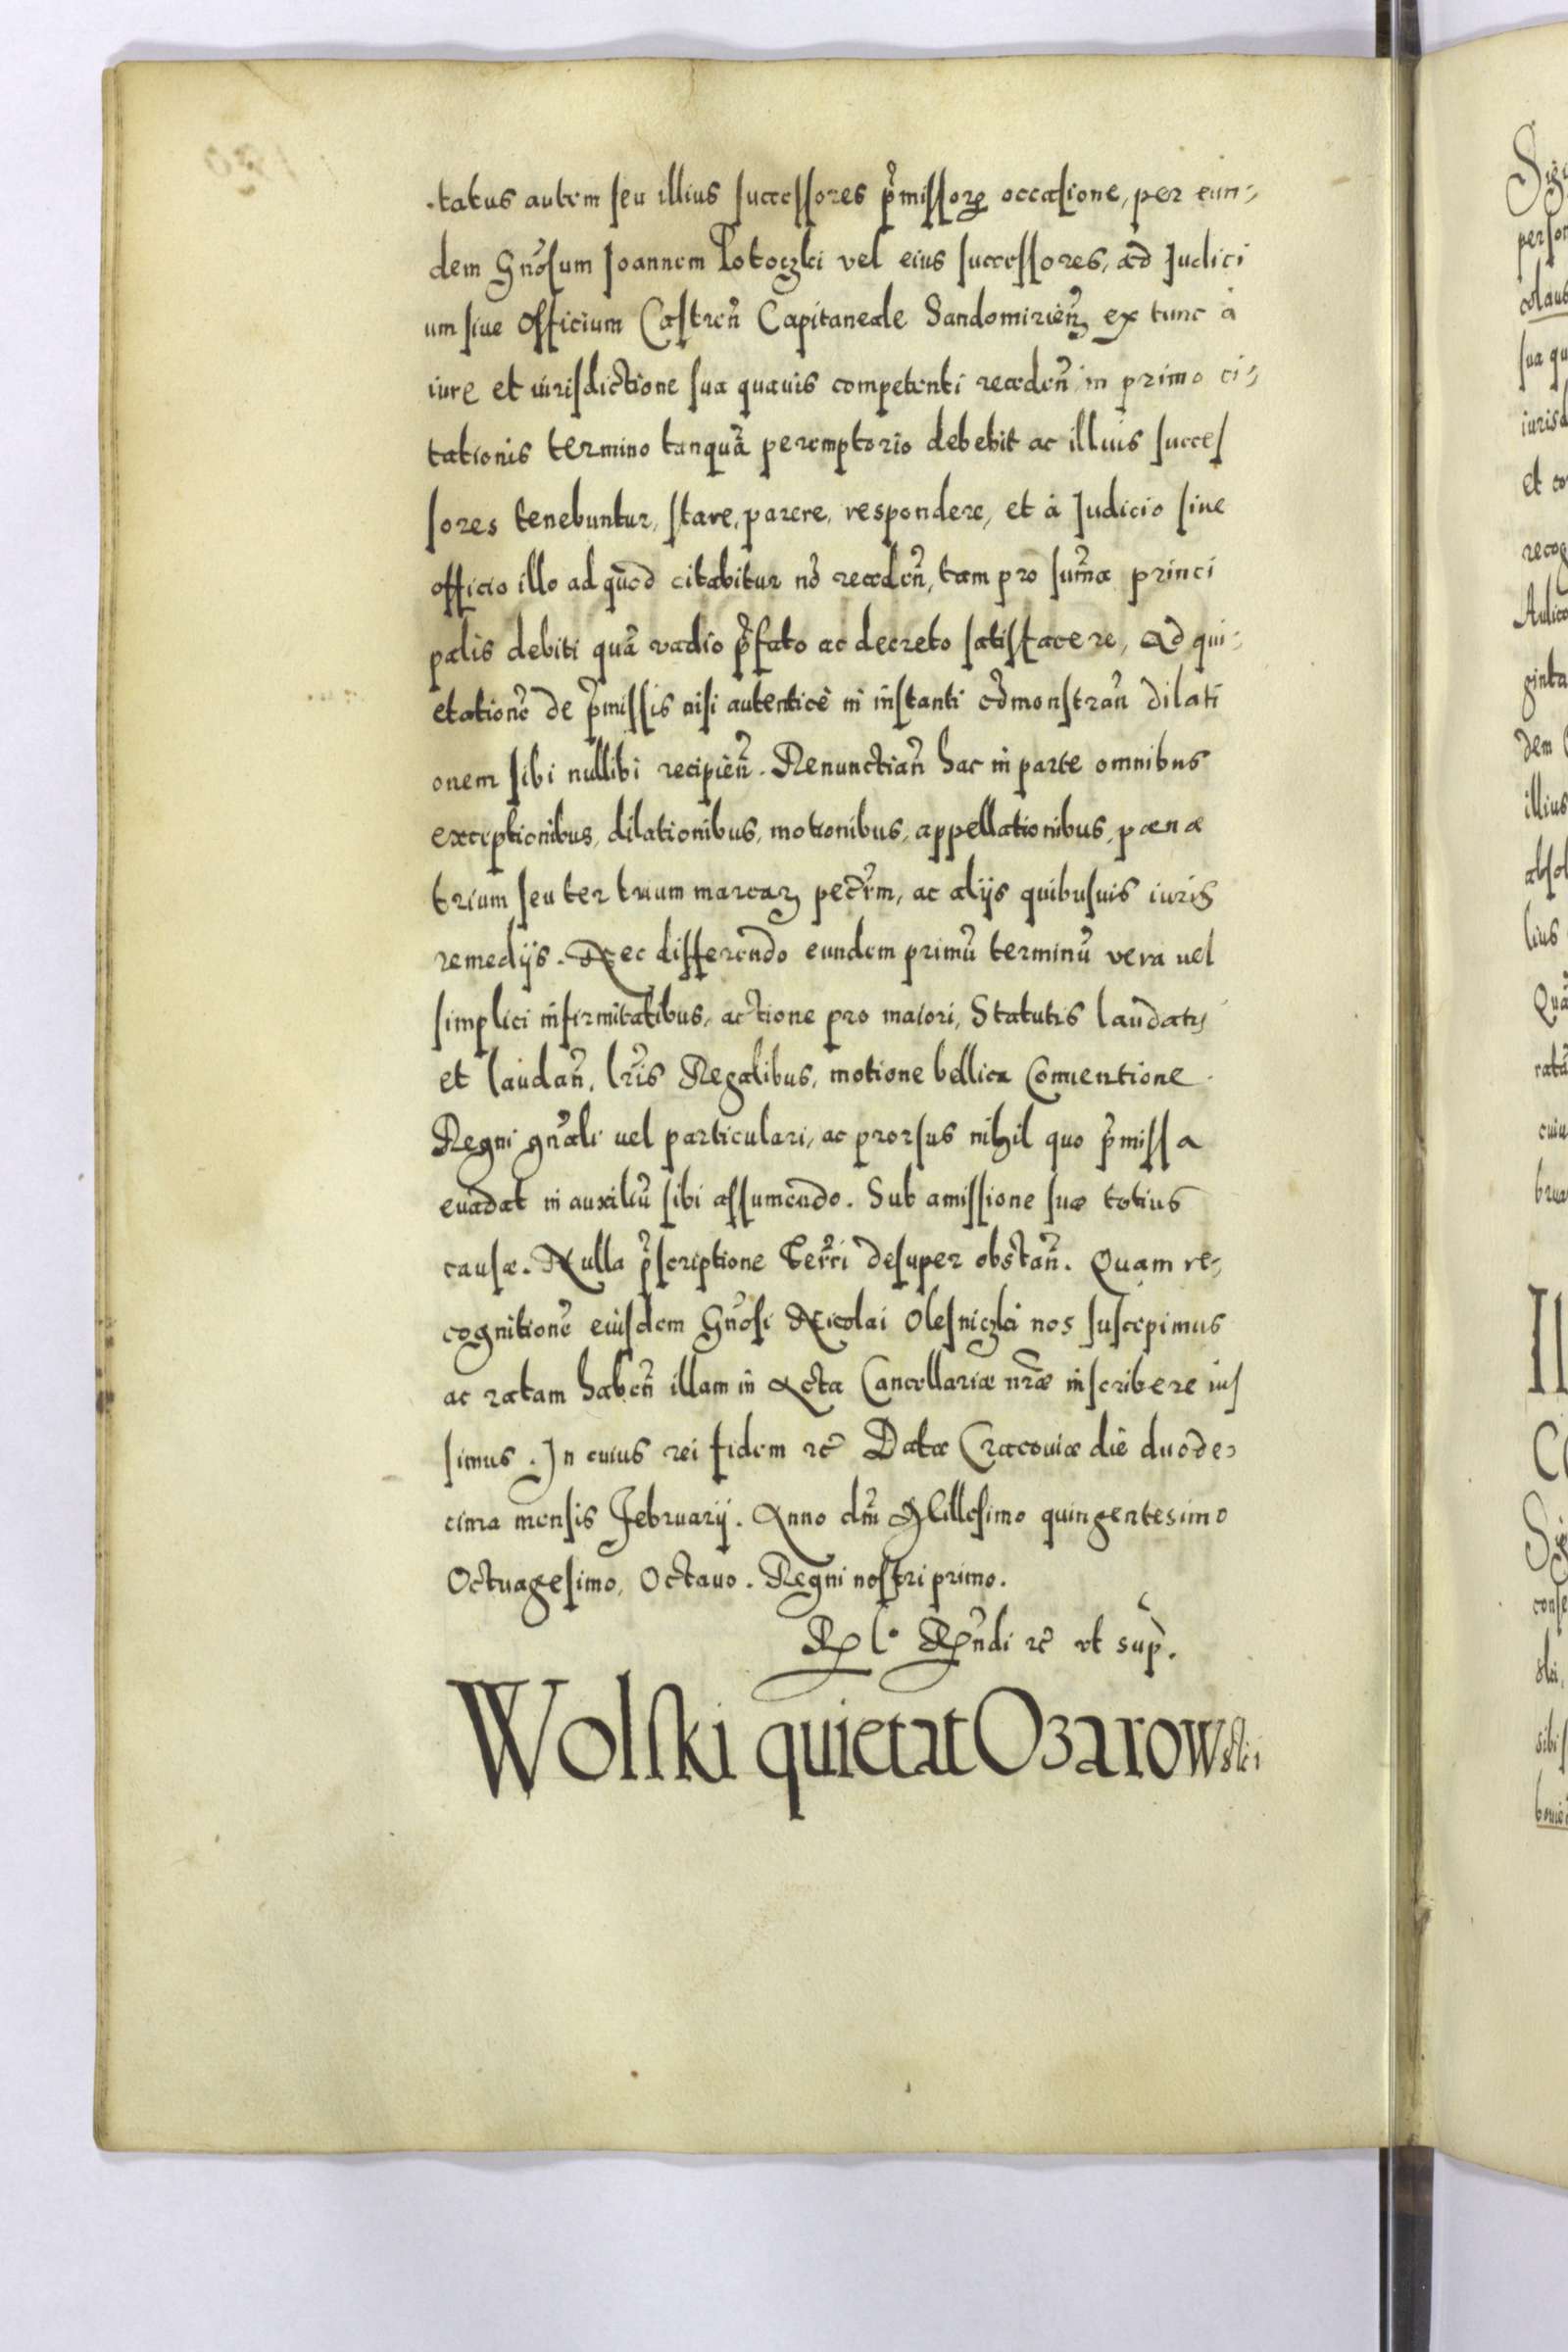 tatus autem seu illius successores p̃missorꝝ occasione, per eun-
dem Gñosum Joannem Potoczki vel eius successores, ad Judici
um siue Officium Castreñ Capitaneale Sandomirieñ ex tunc à
iure et iurisdictione sua quauis competenti recedeñ in primo ci-
tationis termino tanquã peremptorio debebit ac illius succes
sores tenebuntur, stare, parere, respondere, et à Judicio siue
officio illo ad quod citabitur nõ recedeñ, tam pro sum̃a princi
palis debiti quã vadio p̃fato ac decreto satisfacere, Ad qui-
etationẽ de p̃missis nisi autenticè in instanti edmonstrañ dilati
onem sibi nullibi recipieñ. Renunctiañ hac in parte omnibus
exceptionibus, dilationibus, motionibus, appellationibus, pæna
trium seu ter trium marcarꝝ pecr̃m, ac alijs quibusuis iuris
remedijs. Nec differendo eundem primũ terminũ vera uel
simplici infirmitatibus, actione pro maiori, Statutis laudatis
et laudañ, lr̃is Regalibus, motione bellica Conuentione
Regni gñali uel particulari, ac prorsus nihil quo p̃missa
euadat in auxiliũ sibi assumendo. Sub amissione suæ totius
causæ. Nulla p̃scriptione terr̃i desuper obstañ. Quam re-
cognitionẽ eiusdem Gñosi Nicolai Olesniczki nos suscepimus
ac ratam habeñ illam in Acta Cancellariæ nr̃æ inscribere ius
simus. In cuius rei fidem ꝛc̃ Datæ Cracouiæ die duode-
cima mensis Februarij. Anno dm̃i Millesimo quingentesimo
Octuagesimo, Octauo. Regni nostri primo.
Rñdi ꝛc̃ vt sup̃.
Wolski quietat Ozarowski